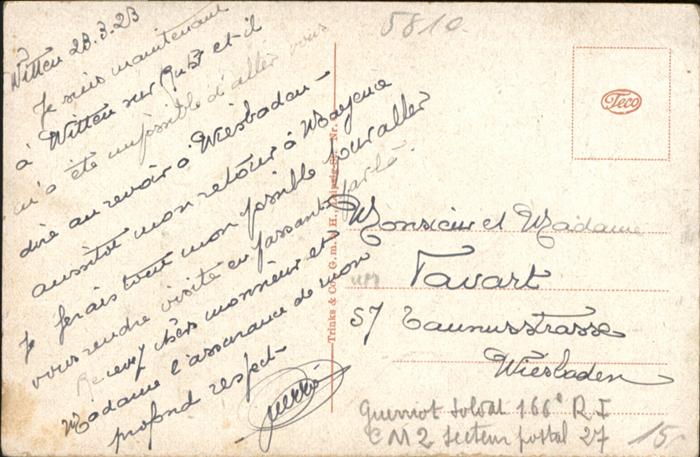 Witten 23.3.23
Je suis maintenant
à Witten sur Ruhr et il
m'a été impossible d'aller vous
dire au revoir à Wiesbaden -
aussitôt mon retour à Mayence
Je ferais tout mon possible pour aller
vous rendre visite en passant par là.
Recevez chers monsieur et
Madame l'assurance de mon
profond respect
5810.
Teco
Trinks & Co., G. m. b. H., Leipzig
Monsieur et Madame
Tavart
57 Taunusstrasse
Wiesbaden
Guerriot Soldat 166e R I
C M 2 secteur postal 27
15.-